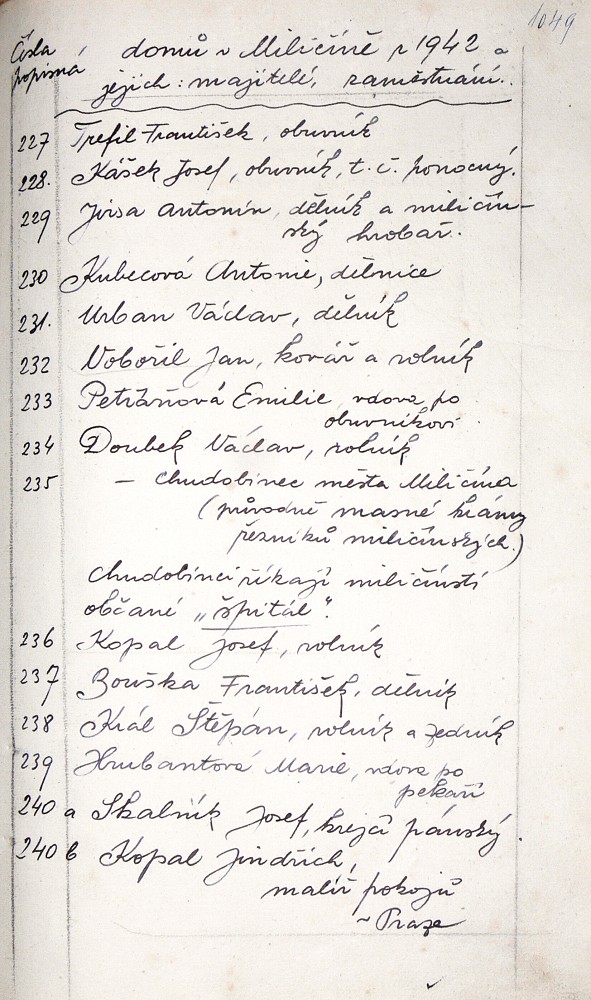 1049
Čísla popisná domů v Miličíně r 1942 a
jejich: majitelé, zaměstnání.
227 Trefil František, obuvník
228. Kášek Josef, obuvník, t. č. ponocný.
229 Jirsa Antonín, dělník a miličín-
ský hrobař.
230 Kubecová Antonie, dělnice
231. Urban Václav, dělník
232 Nobořil Jan, kovář a rolník
233 Petráňová Emilie, vdova po
obuvníkovi.
234 Doubek Václav, rolník
235 – chudobinec města Miličína
(původně masné krámy
řezníků miličínských.)
chudobinci říkají miličínstí
občané „špitál".
236 Kopal Josef, rolník
237 Bouška František, dělník
238 Král Štěpán, rolník a zedník
239 Hrubantová Marie, vdova po
pekaři
240 a Skalník Josef, krejčí pánský.
240 b Kopal Jindřich,
malíř pokojů
v Praze